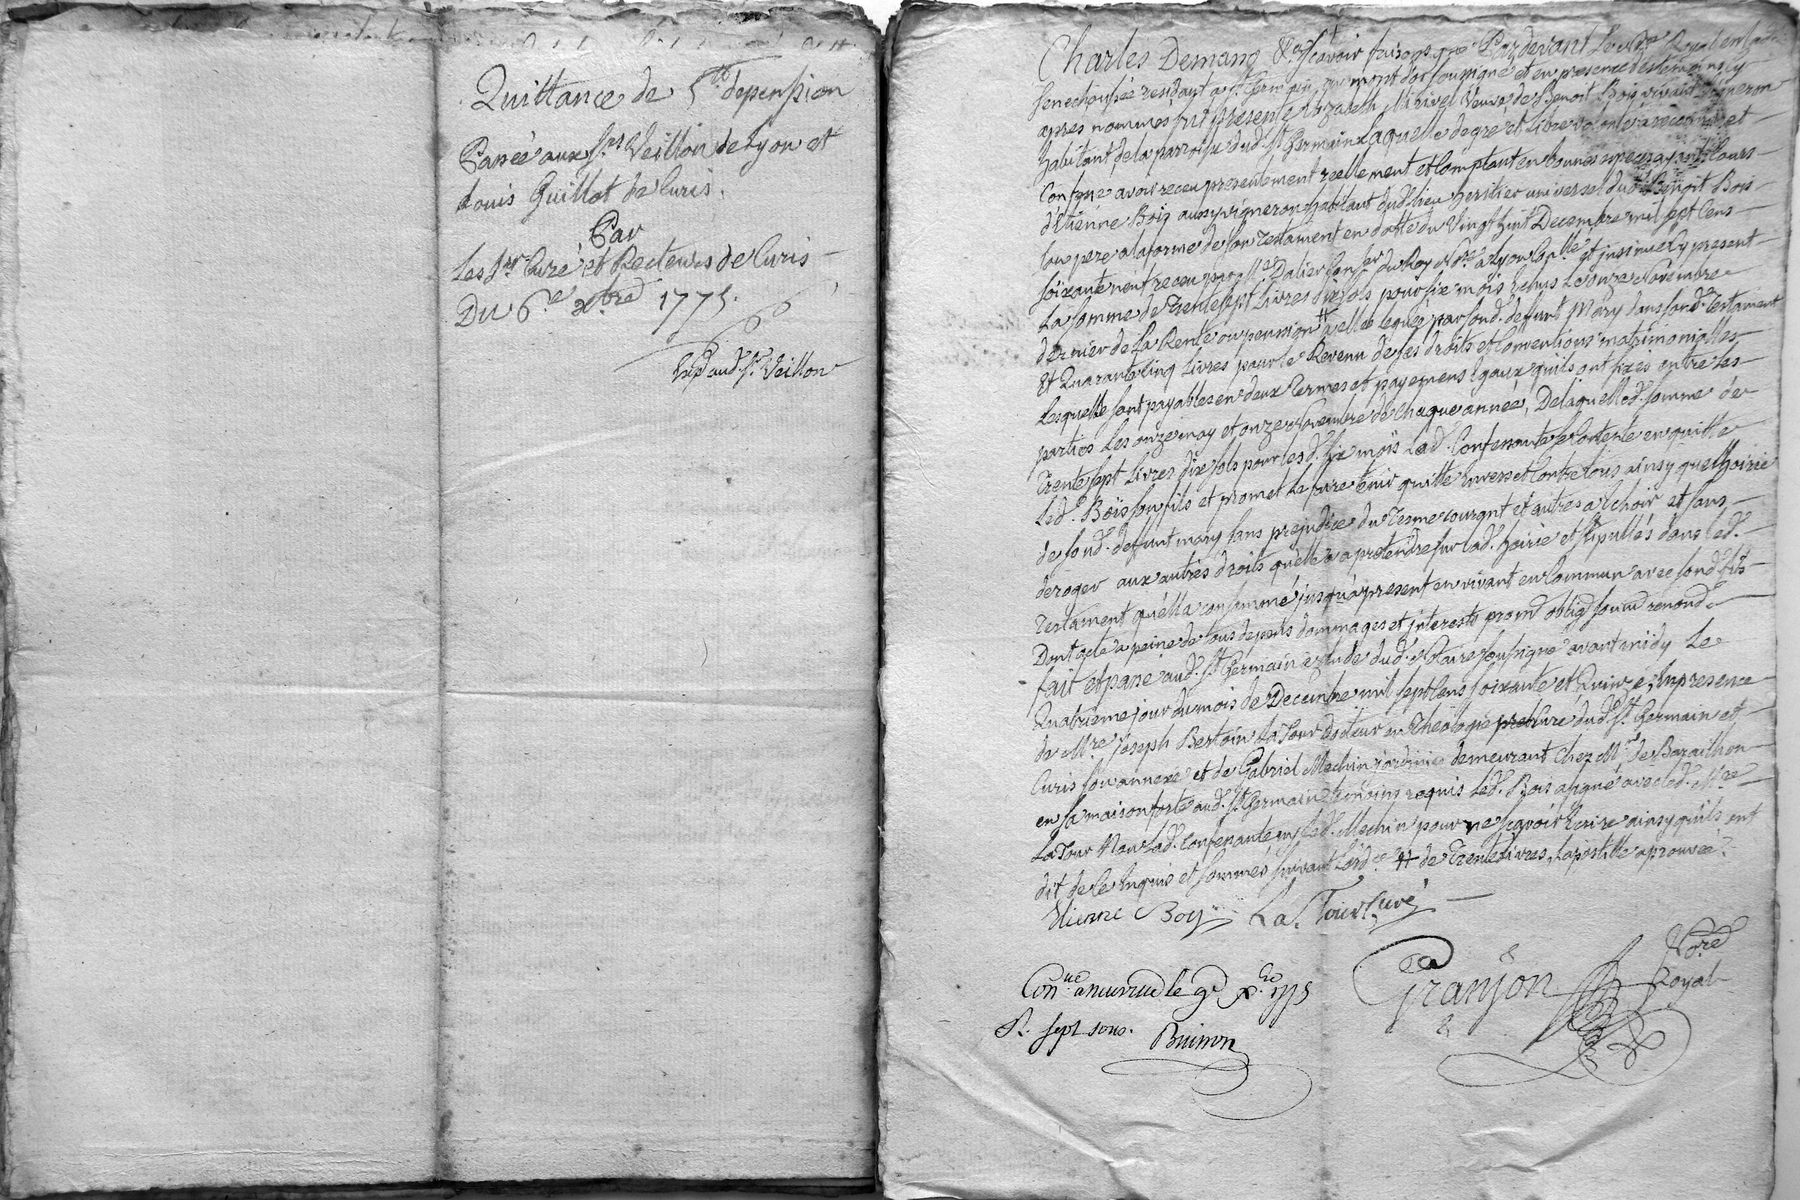 Quittance de 5.te depension
Passée aux Srs Veillon de Lyon et
Louis Guillot de Curis.
Par
Les Srs Curé et Recteurs de Curis
Du 6e xbre 1775.
Exp aud. Sr Veillon
Charles Demang &a Scavoir faisons que Pardevant Le Nre Royal en la
Senechaussée residant a St Germain au mont dor sousigné et en presence des temoins cy
apres nommés fut presente Elizabeth Minivel Veuve de Benoit Bois vivant vigneron
habitant de la parroisse dud. St Germain Laquelle de gré et libre volonté a reconnu et
Confessé avoir receu presentement reellement et Comptant en bonnes especes ayant Cours
d'Etienne Bois aussy vigneron habitant dud. lieu heritier universel dud. Benoit Bois
son pere a la forme de son Testament en datte du Vingt huit Decembre mil sept Cens
soixante neuf receu par Me Dalier Conser du Roy Nre a Lyon Con.llé et insinué Cy present
La somme de Trente sept Livres dix sols pour six mois Echus Le onze Novembre
dernier de La Rente ou pension # a elle leguée par sond. defunt Mary dans sond. Testament
Et Quarante Cinq Livres pour le Revenu de ses droits et Conventions matrimonialles
Lesquelles sont payables en deux Termes et payemens egaux quils ont fixés entre les
parties Les onze may et onze Novembre de Chaque année, De laquelled. somme de
Trente sept Livres dix sols pour lesd. six mois Lad. Confessante se Contente en quitte
Led. Bois son fils et promet Le faire tenir quitte Envers et Contre tous ainsy que Lhoirie
de sond. defunt mary sans prejudice du Terme courant et autres a Echoir et sans
deroger aux autres droits quelle a a pretendre sur lad. hoirie et stipullés dans led.
Testament quella consommé jusqua present en vivant en Commun avec sond. fils
Dont acte a peine de tous depens dommages et interests prom oblig soum renond.
fait et passé aud. St Germain Etude dud. Notaire sousigné avant midy Le
Quatrieme jour du mois de Decembre mil sept Cens soixante et Quinze, En presence
de Mre Joseph Bertoin La Tour docteur en Theologie pretre Curé dud. St Germain et
Curis son annexe et de Gabriel Mechin jardinier demeurant Chez Mr de Baraillon
en sa maison forte aud. St Germain temoins requis Led. Bois a signé avec led. Mre
La Tour Non Lad. Confessante ny Led. Mechin pour ne scavoir Ecrire ainsy quils ont
dit de ce Enquis et sommés suivant Lord.ce # de Trente Livres, Lapostille aprouvée.
Etienne Boy La Tour Curé
Granjon Nore
Royal
Con.lle a neuville le 9e xbre 1775
R. sept sous. Buisson